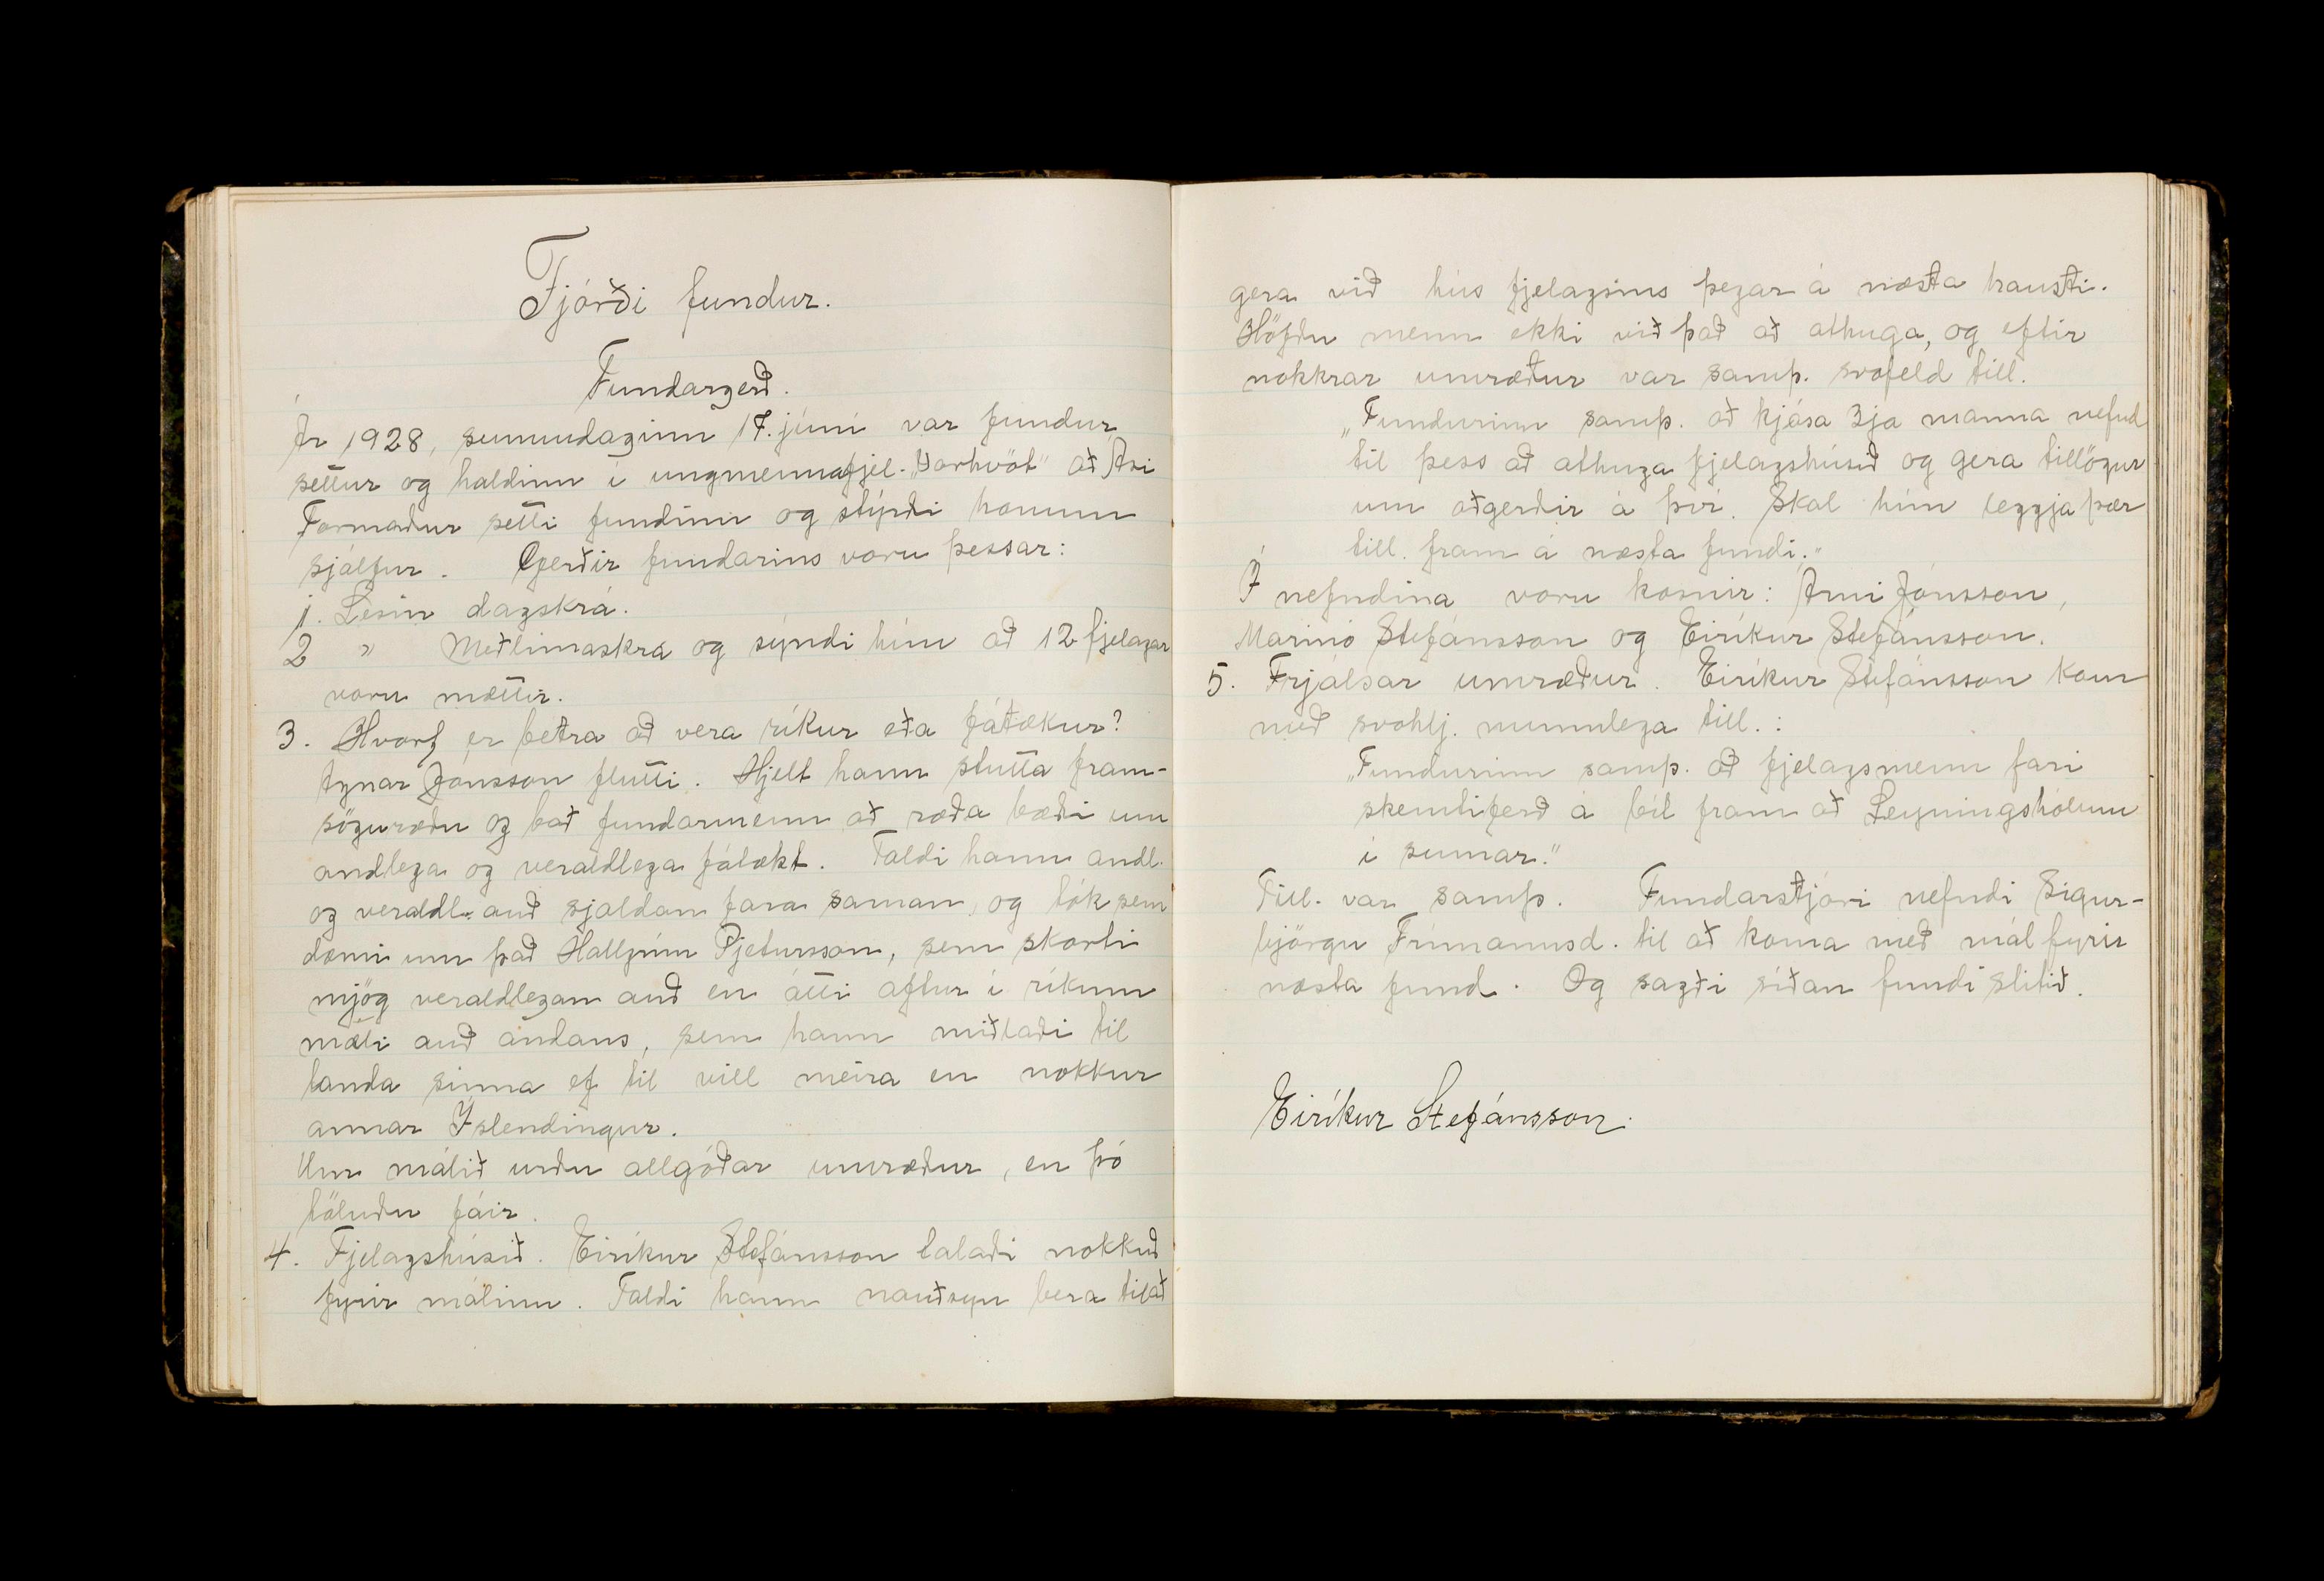 Fjórði fundur.
Fundargerð.
Ár 1928, sunnudaginn 17. júní var fundur
settur og haldinn í ungmennafjel. „Vorhvöt" að Ási
Formaður setti fundinn og stýrði honum
sjálfur. Gerðir fundarins voru þessar:
1. Lesin dagskrá.
2 " Meðlimaskrá og sýndi hún að 12 fjelagar
voru mættir.
3. Hvort er betra að vera ríkur eða fátækur?
Agnar Jónsson flutti. Hjelt hann stutta fram-
söguræðu og bað fundarmenn að ræða bæði um
andlega og veraldlega fátækt. Taldi hann andl.
og veraldl. auð sjaldan fara saman, og tók sem
dæmi um það Hallgrím Pjetursson, sem skorti
mjög veraldlegan auð en átti aftur í ríkum
mæli auð andans, sem hann miðlaði til
landa sinna ef til vill meira en nokkur
annar Íslendingur.
Um málið urðu allgóðar umræður, en þó
töluðu fáir.
4. Fjelagshúsið. Eiríkur Stefánsson talaði nokkuð
fyrir málinu. Taldi hann nauðsyn bera til að
gera við hús fjelagsins þegar á næsta hausti.
Höfðu menn ekki við það að athuga, og eftir
nokkrar umræður var samþ. svofeld till.
„Fundurinn samþ. að kjósa 3ja manna nefnd
til þess að athuga fjelagshúsið og gera tillögur
um aðgerðir á því. Skal hún leggja þær
till. fram á næsta fundi."
Í nefndina voru kosnir: Árni Jónsson,
Marinó Stefánsson og Eiríkur Stefánsson.
5. Frjálsar umræður. Eiríkur Stefánsson kom
með svohlj. munnlega till.:
„Fundurinn samþ. að fjelagsmenn fari
skemtiferð á bíl fram að Leyningshólum
í sumar."
Till. var samþ. Fundarstjóri nefndi Sigur-
björgu Frímannsd. til að koma með mál fyrir
næsta fund. Og sagði síðan fundi slitið.
Eiríkur Stefánsson.